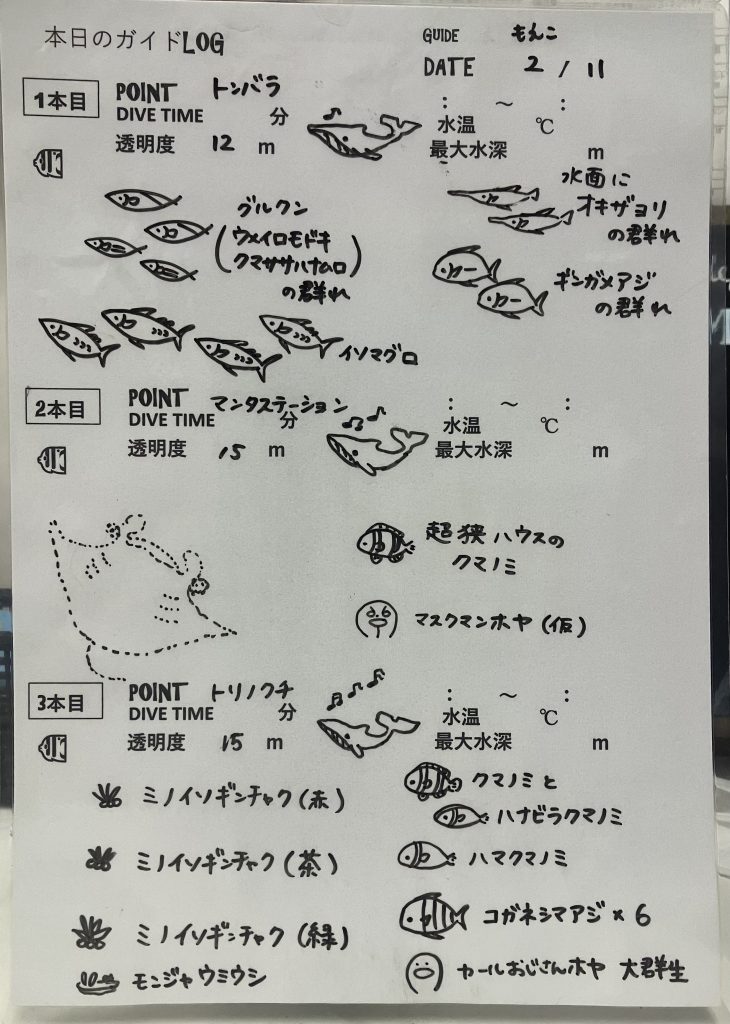 本日のガイドLOG
GUIDE もえこ
DATE 2 / 11
1本目 POINT トンバラ
DIVE TIME 分 : ～ :
透明度 12 m 水温 ℃
最大水深 m
グルクン
(ウメイロモドキ
クマササハナムロ)
の群れ
水面に
オキザヨリ
の群れ
ギンガメアジ
の群れ
イソマグロ
2本目 POINT マンタステーション
DIVE TIME 分 : ～ :
透明度 15 m 水温 ℃
最大水深 m
超狭ハウスの
クマノミ
マスクマンホヤ (仮)
3本目 POINT トリノクチ
DIVE TIME 分 : ～ :
透明度 15 m 水温 ℃
最大水深 m
ミノイソギンチャク (赤)
ミノイソギンチャク (茶)
ミノイソギンチャク (緑)
モンジャウミウシ
クマノミと
ハナビラクマノミ
ハマクマノミ
コガネシマアジ×6
カールおじさんホヤ 大群生